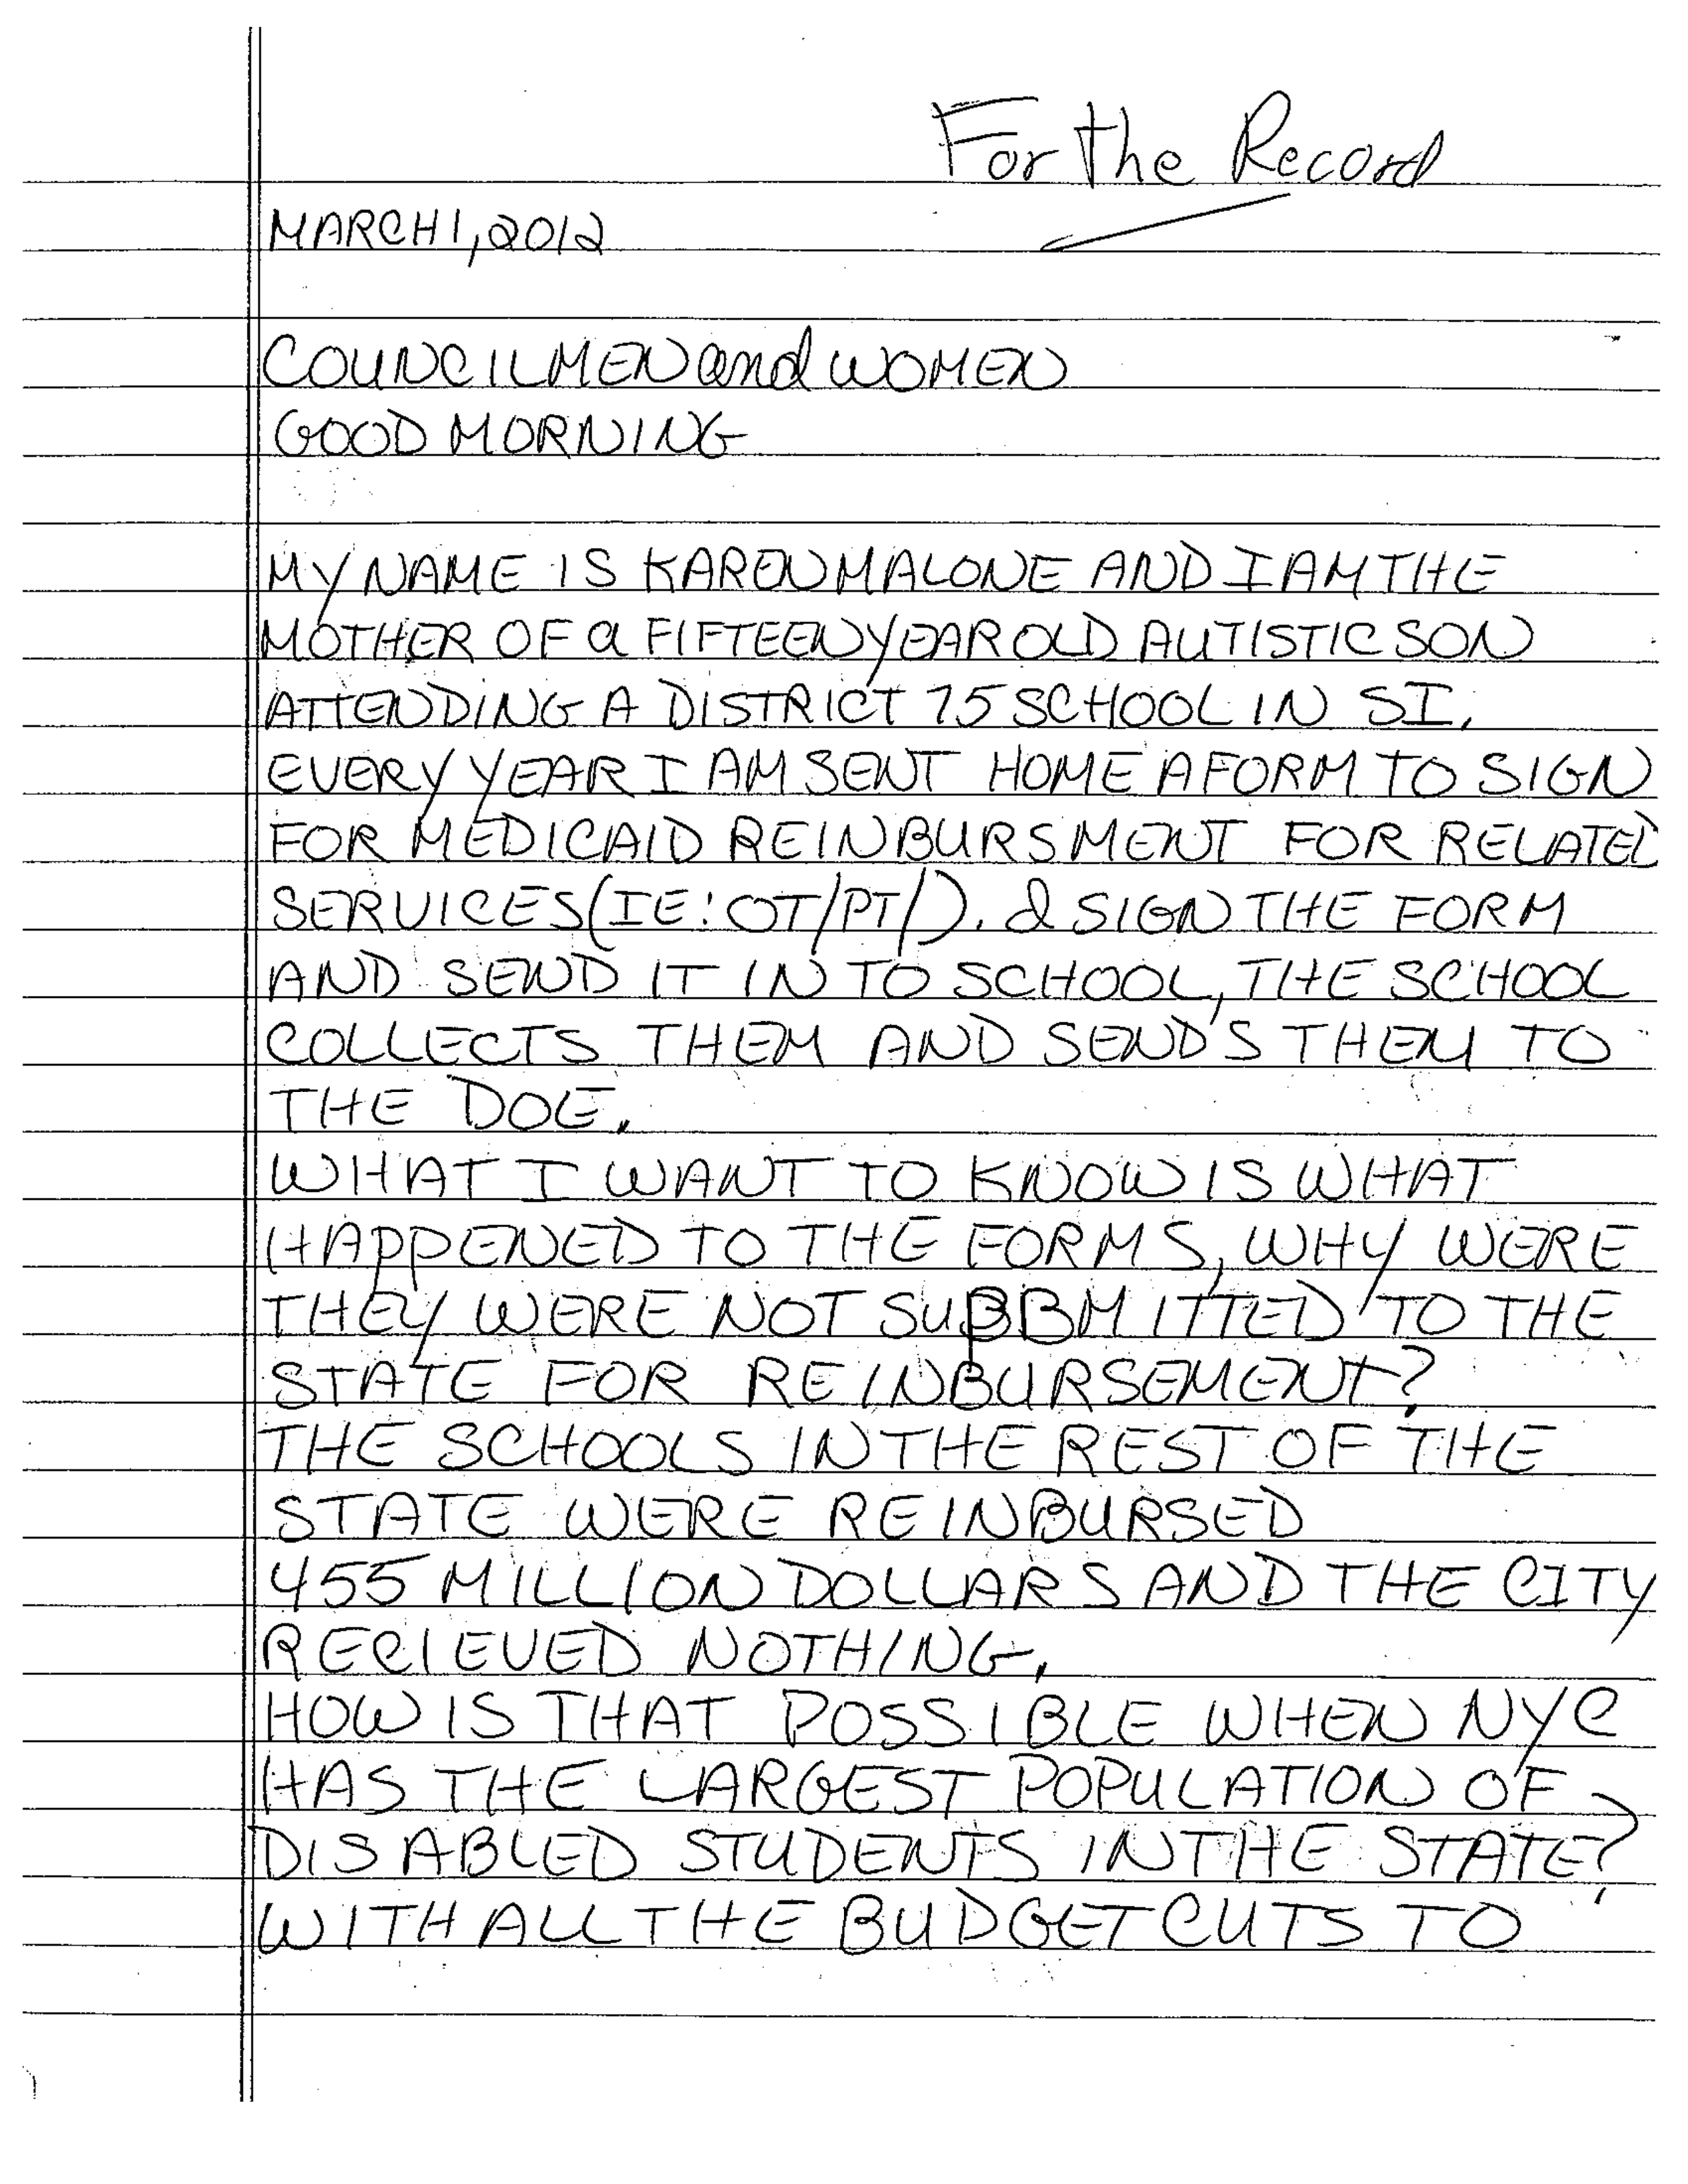 For the Record
MARCH 1, 2012
COUNCILMEN and WOMEN
GOOD MORNING
MY NAME IS KAREN MALONE AND I AM THE
MOTHER OF a FIFTEEN YEAR OLD AUTISTIC SON
ATTENDING A DISTRICT 75 SCHOOL IN SI.
EVERY YEAR I AM SENT HOME A FORM TO SIGN
FOR MEDICAID REINBURSMENT FOR RELATED
SERVICES (IE: OT/PT/). I SIGN THE FORM
AND SEND IT IN TO SCHOOL, THE SCHOOL
COLLECTS THEM AND SEND'S THEM TO
THE DOE.
WHAT I WANT TO KNOW IS WHAT
HAPPENED TO THE FORMS, WHY WERE
THEY WERE NOT SUBBMITTED TO THE
STATE FOR REINBURSEMENT?
THE SCHOOLS IN THE REST OF THE
STATE WERE REINBURSED
455 MILLION DOLLARS AND THE CITY
RECIEVED NOTHING.
HOW IS THAT POSSIBLE WHEN NYC
HAS THE LARGEST POPULATION OF
DISABLED STUDENTS IN THE STATE?
WITH ALL THE BUDGET CUTS TO